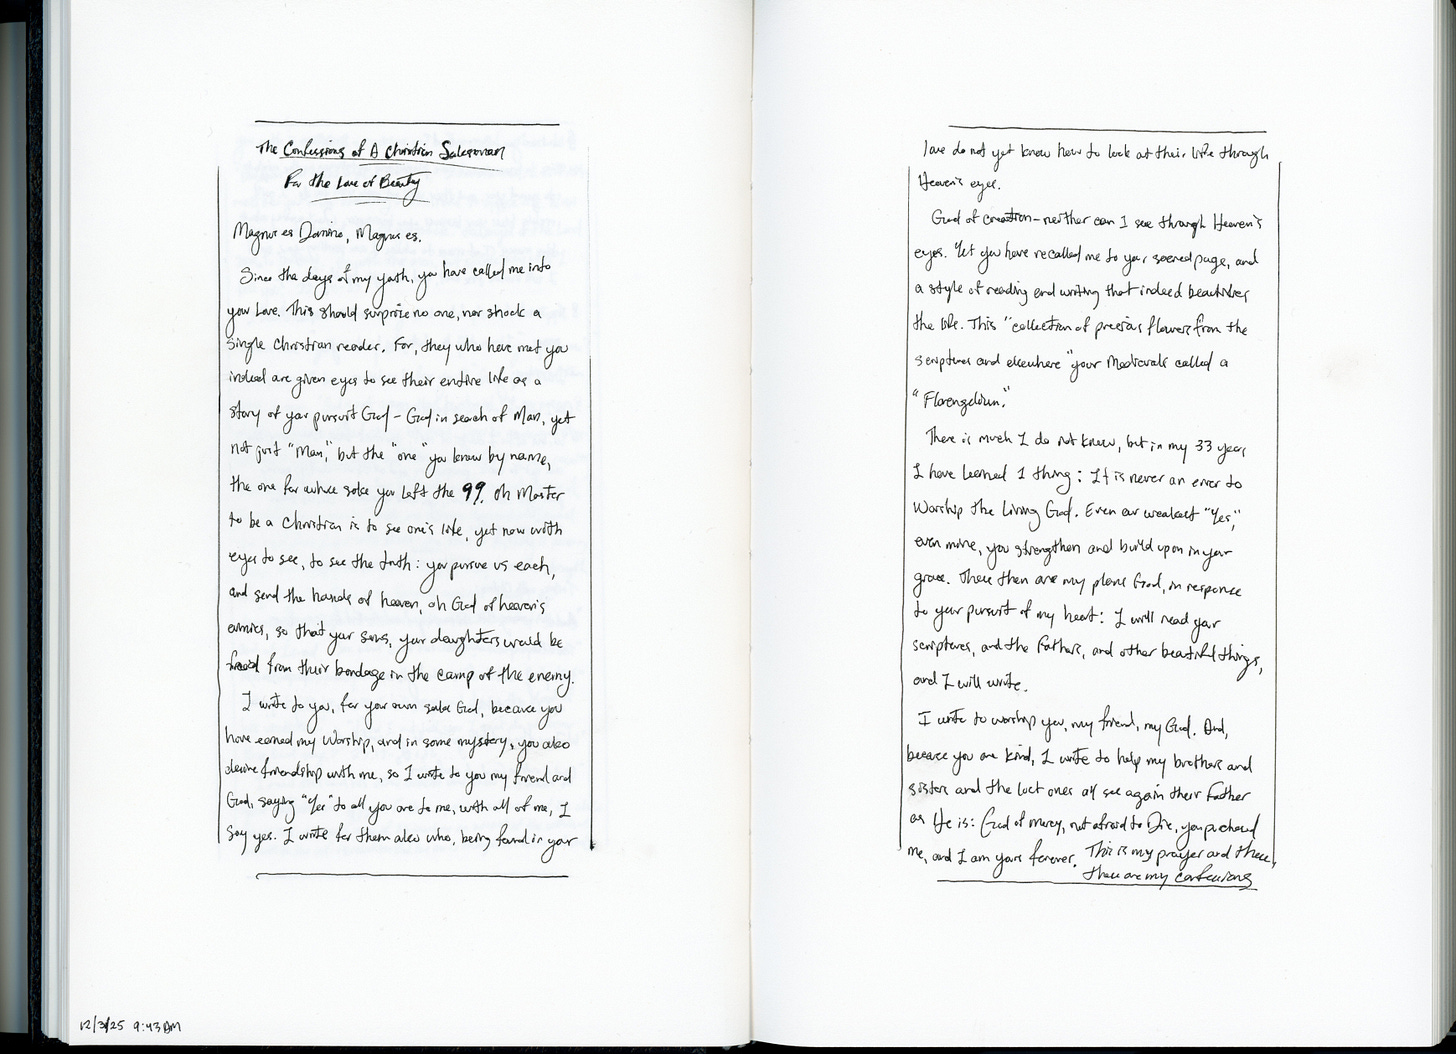 The Confessions of A Christian Salesman
For the Love of Beauty
Magnus es Domine, Magnus es.
Since the days of my youth, you have called me into
your Love. This should surprise no one, nor shock a
single Christian reader. For, they who have met you
indeed are given eyes to see their entire life as a
story of your pursuit God – God in search of Man, yet
not just "Man," but the "one" you know by name,
the one for whose sake you left the 99. Oh Master
to be a Christian is to see one's life, yet now with
eyes to see, to see the truth: you pursue us each,
and send the hands of heaven, oh God of heaven's
armies, so that your sons, your daughters would be
freed from their bondage in the camp of the enemy.
I write to you, for your own sake God, because you
have earned my worship, and in some mystery, you also
desire friendship with me, so I write to you my friend and
God, saying "Yes" to all you are to me, with all of me, I
say yes. I write for them also who, being found in your
love do not yet know how to look at their life through
Heaven's eyes.
God of creation – neither can I see through Heaven's
eyes. Yet you have recalled me to your sacred page, and
a style of reading and writing that indeed beautifies
the life. This "collection of precious flowers from the
scriptures and elsewhere" your Medievals called a
"Florengelium."
There is much I do not know, but in my 33 years
I have learned 1 thing: It is never an error to
Worship the Living God. Even our weakest "Yes,"
even mine, you strengthen and build upon in your
grace. These then are my plans God, in response
to your pursuit of my heart: I will read your
scriptures, and the Fathers, and other beautiful things,
and I will write.
I write to worship you, my friend, my God. And,
because you are kind, I write to help my brothers and
sisters and the lost ones all see again their Father
as He is: God of mercy, not afraid to Die, you purchased
me, and I am yours forever. This is my prayer and these,
these are my confessions
12/3/25 9:43 AM